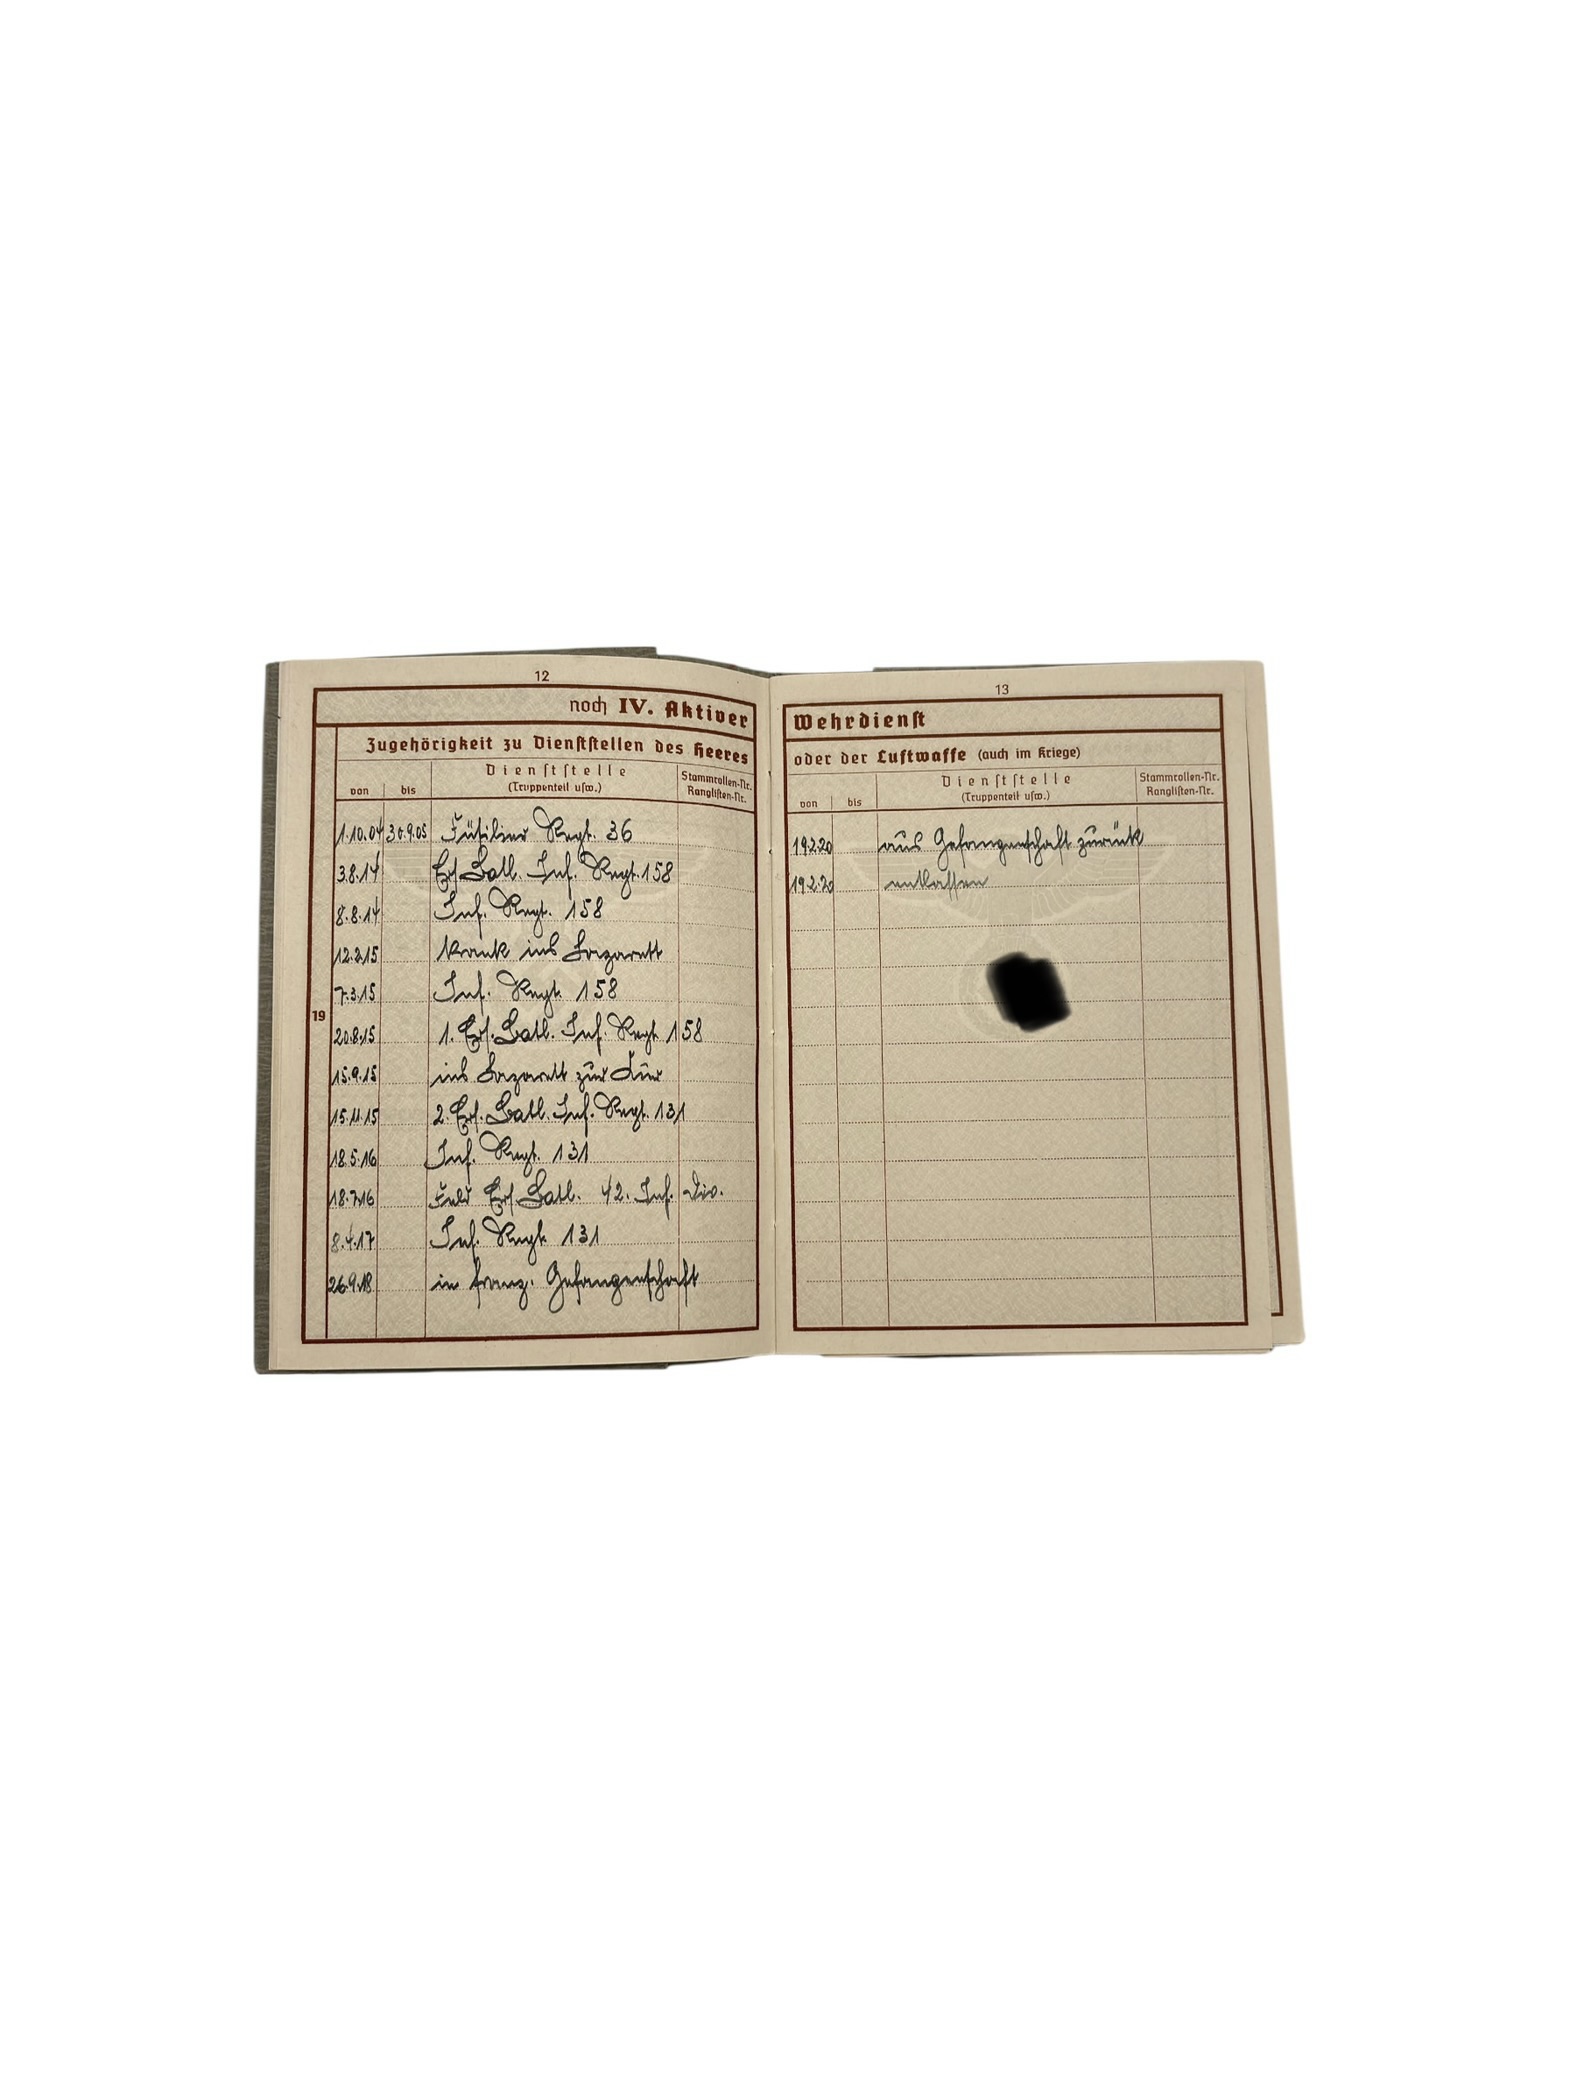 12
noch IV. Aktiver
Zugehörigkeit zu Dienststellen des Heeres
von bis Dienststelle (Truppenteil usw.) Stammrollen-Nr. Ranglisten-Nr.
19
1.10.04 30.9.05 Füsilier Regt. 36
3.8.14 Ers. Batl. Inf. Regt. 158
8.8.14 Inf. Regt. 158
12.2.15 krank ins Lazarett
7.3.15 Inf. Regt. 158
20.8.15 1. Ers. Batl. Inf. Regt 158
15.9.15 ins Lazarett zur Kur
15.11.15 2. Ers. Batl. Inf. Regt. 131
18.5.16 Inf. Regt. 131
18.7.16 Feld Ers Batl. 42. Inf. Div.
8.4.17 Inf. Regt. 131
26.9.18 in franz. Gefangenschaft
13
Wehrdienst
oder der Luftwaffe (auch im Kriege)
von bis Dienststelle (Truppenteil usw.) Stammrollen-Nr. Ranglisten-Nr.
19.2.20 aus Gefangenschaft zurück
19.2.20 entlassen